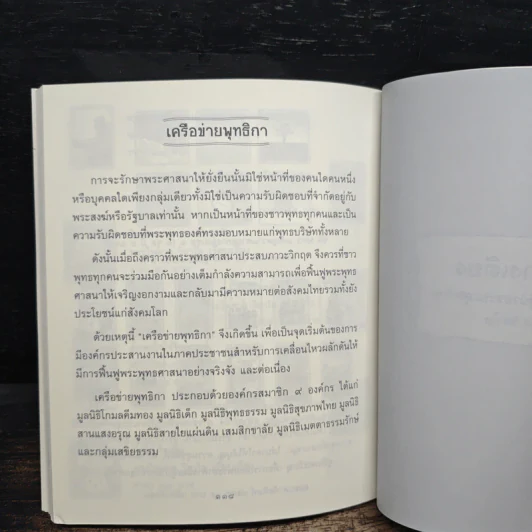 เครือข่ายพุทธิกา
การจะรักษาพระศาสนาให้ยั่งยืนนั้นมิใช่หน้าที่ของคนใดคนหนึ่ง
หรือบุคคลใดเพียงกลุ่มเดียวทั้งมิใช่เป็นความรับผิดชอบที่จำกัดอยู่กับ
พระสงฆ์หรือรัฐบาลเท่านั้น หากเป็นหน้าที่ของชาวพุทธทุกคนและเป็น
ความรับผิดชอบที่พระพุทธองค์ทรงมอบหมายแก่พุทธบริษัททั้งหลาย
ดังนั้นเมื่อถึงคราวที่พระพุทธศาสนาประสบภาวะวิกฤต จึงควรที่ชาว
พุทธทุกคนจะร่วมมือกันอย่างเต็มกำลังความสามารถเพื่อฟื้นฟูพระพุทธ
ศาสนาให้เจริญงอกงามและกลับมามีความหมายต่อสังคมไทยรวมทั้งยัง
ประโยชน์แก่สังคมโลก
ด้วยเหตุนี้ "เครือข่ายพุทธิกา" จึงเกิดขึ้น เพื่อเป็นจุดเริ่มต้นของการ
มีองค์กรประสานงานในภาคประชาชนสำหรับการเคลื่อนไหวผลักดันให้
มีการฟื้นฟูพระพุทธศาสนาอย่างจริงจัง และต่อเนื่อง
เครือข่ายพุทธิกา ประกอบด้วยองค์กรสมาชิก ๙ องค์กร ได้แก่
มูลนิธิโกมลคีมทอง มูลนิธิเด็ก มูลนิธิพุทธธรรม มูลนิธิสุขภาพไทย มูลนิธิ
สานแสงอรุณ มูลนิธิสายใยแผ่นดิน เสมสิกขาลัย มูลนิธิเมตตาธรรมรักษ์
และกลุ่มเสขิยธรรม
๑๓๘